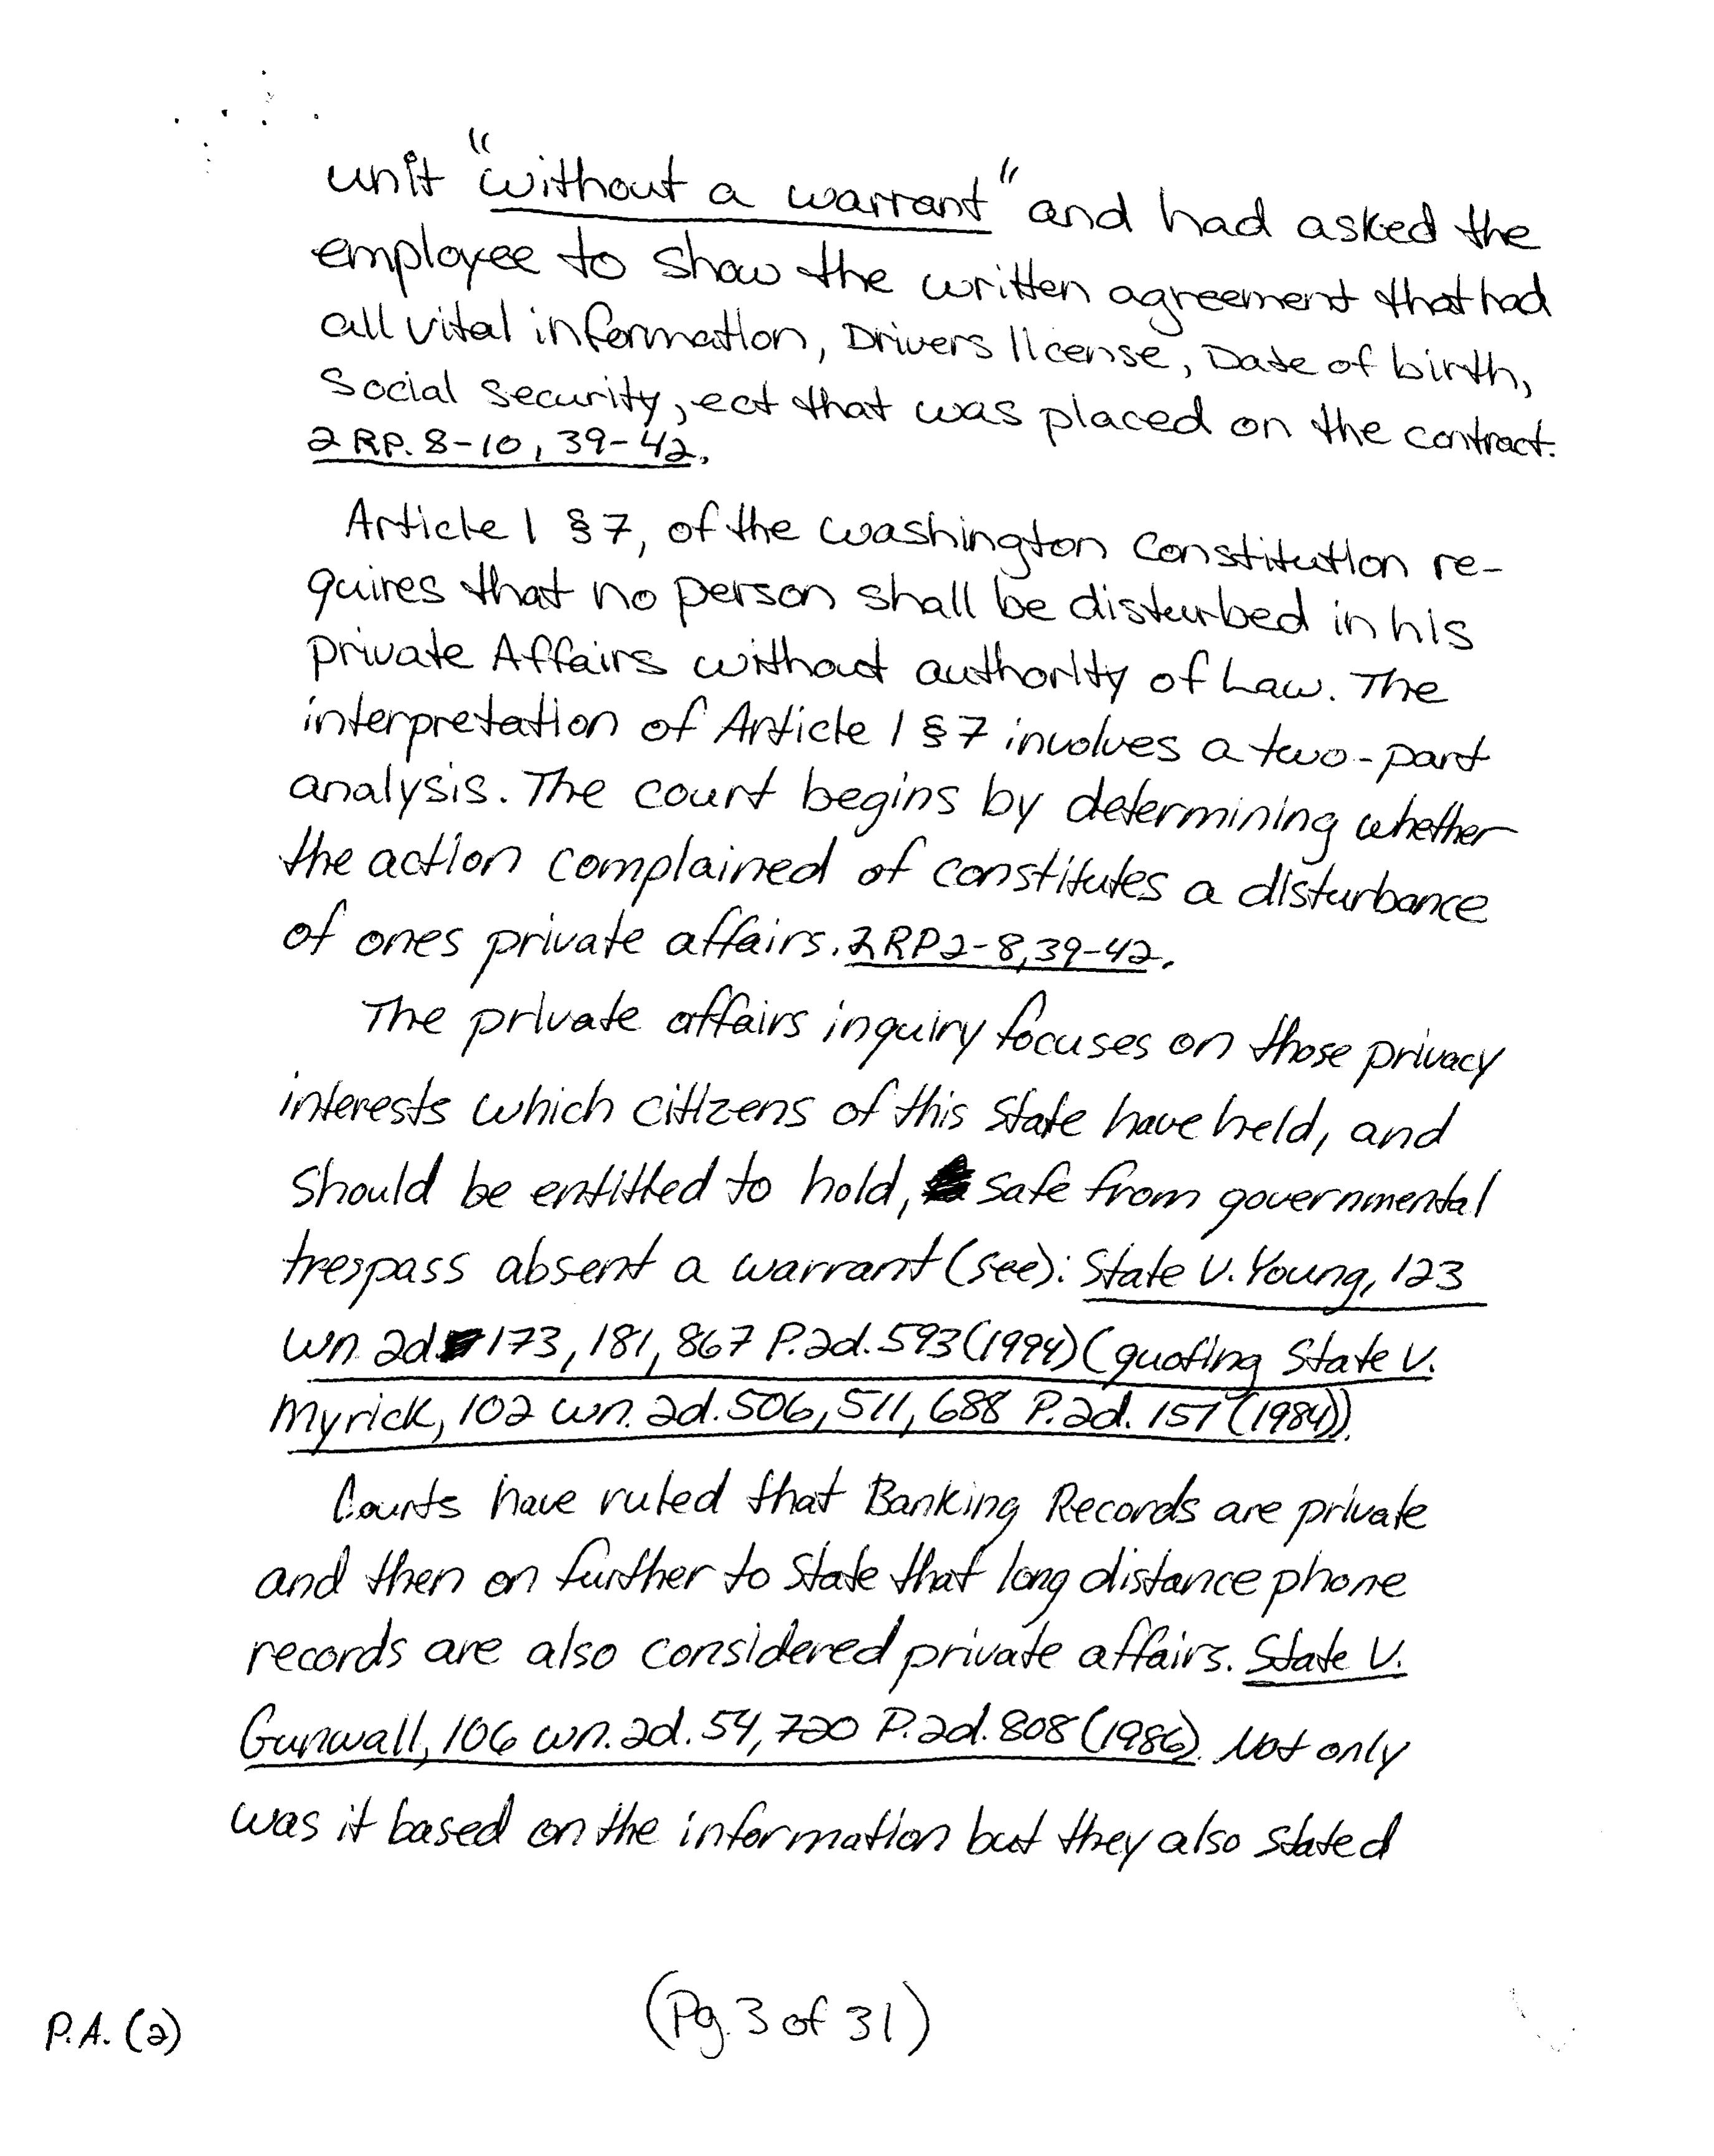 unit "without a warrant" and had asked the
employee to show the written agreement that had
all vital information, Drivers license, Date of birth,
Social Security, ect that was placed on the contract.
2 RP. 8-10, 39-42.
Article 1 §7, of the Washington Constitution re-
quires that no person shall be disturbed in his
Private Affairs without authority of Law. The
interpretation of Article 1 §7 involves a two-part
analysis. The court begins by determining whether
the action complained of constitutes a disturbance
of ones private affairs. 2RP2-8,39-42.
The private affairs inquiry focuses on those privacy
interests which citizens of this State have held, and
should be entitled to hold, safe from governmental
trespass absent a warrant (see): State V. Young, 123
Wn. 2d. 173, 181, 867 P.2d. 593 (1994) (quoting State V.
Myrick, 102 Wn. 2d. 506, 511, 688 P.2d. 151 (1984)).
Courts have ruled that Banking Records are private
and then on further to State that long distance phone
records are also considered private affairs. State V.
Gunwall, 106 Wn. 2d. 54, 720 P.2d. 808 (1986). Not only
was it based on the information but they also stated
(Pg. 3 of 31)
P.A. (2)